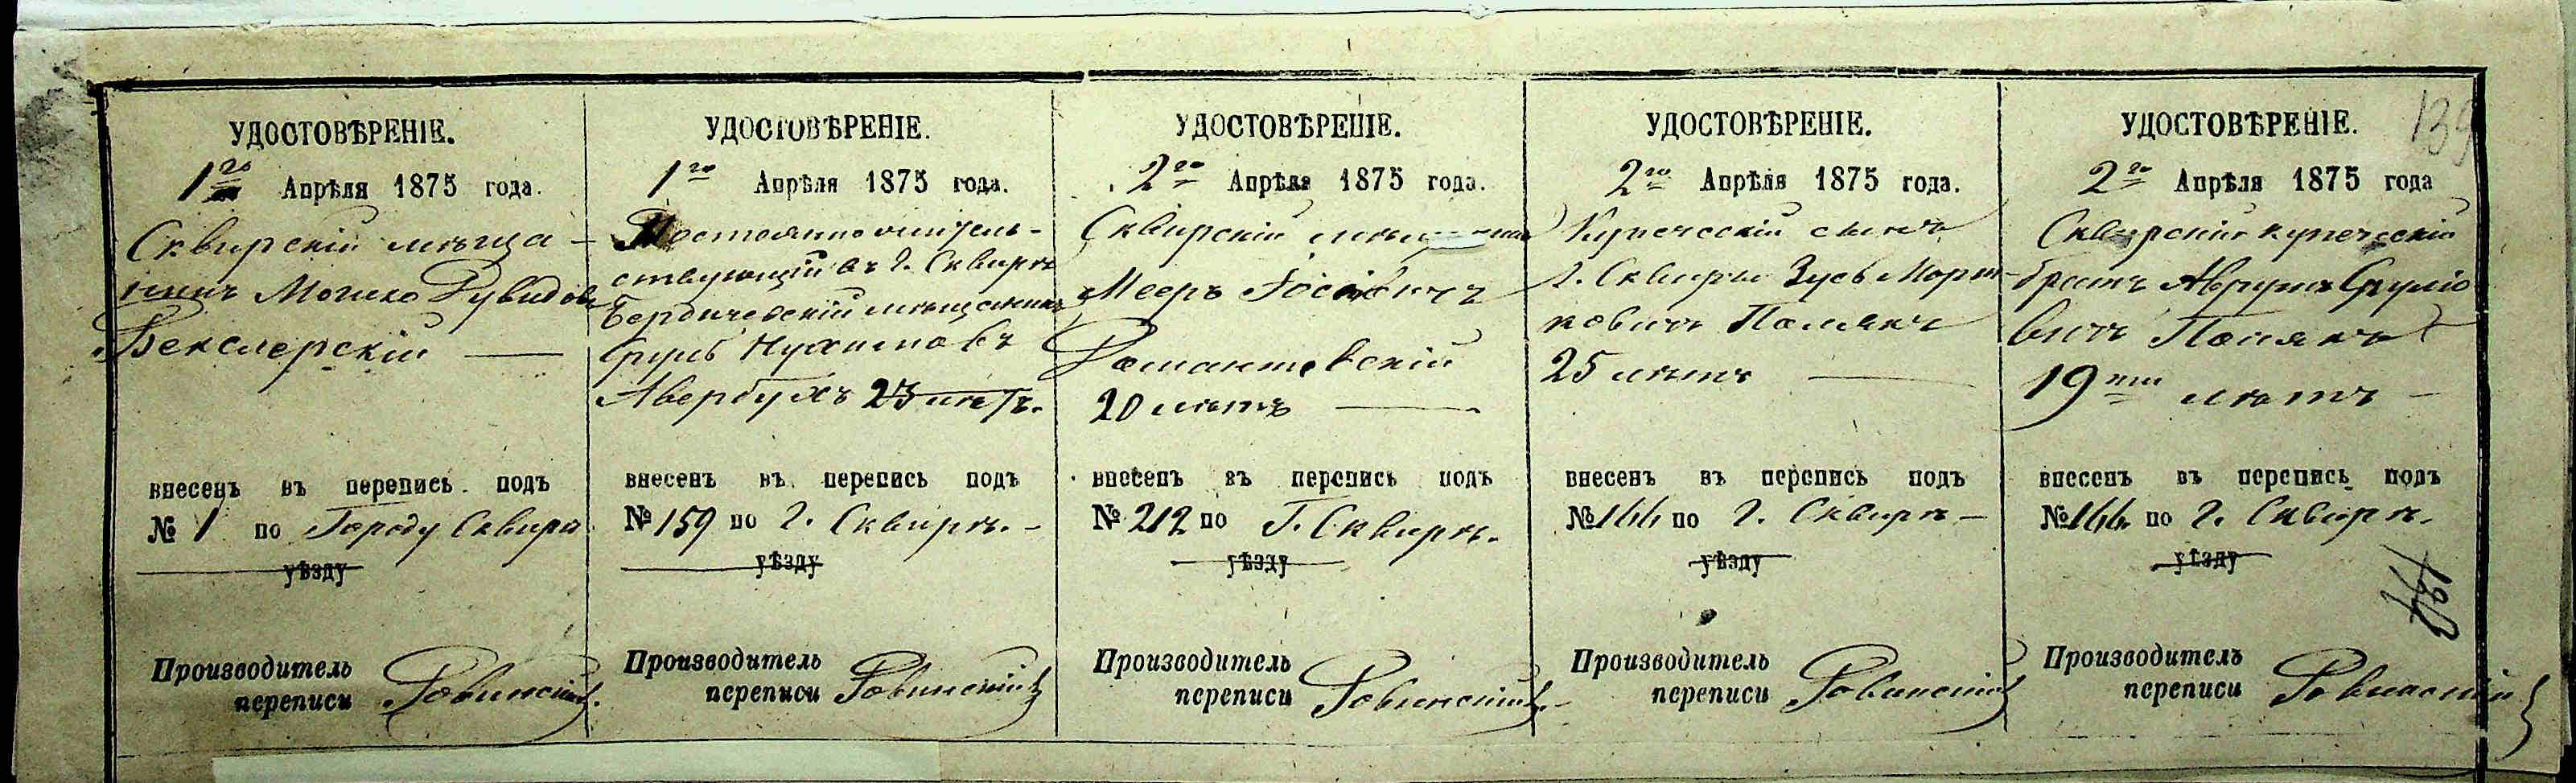 139
УДОСТОВѢРЕНІЕ.
1го Апрѣля 1875 года.
Сквирскій мѣща-
нинъ Мошко Рувидовъ
Векслерскій
внесенъ въ перепись подъ
№ 1 по Городу Сквирѣ
уѣзду
Производитель
переписи Ровинскій
УДОСТОВѢРЕНІЕ.
1го Апрѣля 1875 года.
Постоянно жител-
ствующій въ г. Сквирѣ
Бердичевскій мѣщанинъ
Сруль Нухимовъ
Авербухъ 23 лѣтъ.
внесенъ въ перепись подъ
№ 159 по г. Сквирѣ.
уѣзду
Производитель
переписи Ровинскій
УДОСТОВѢРЕНІЕ.
2го Апрѣля 1875 года.
Сквирскій
Мееръ Іосіовичъ
Романовскій
20 лѣтъ
внесенъ въ перепись подъ
№ 212 по Г. Сквирѣ.
уѣзду
Производитель
переписи Ровинскій
УДОСТОВѢРЕНІЕ.
2го Апрѣля 1875 года.
Купеческій сынъ
г. Сквиры Зусь Морт-
ковичъ Полякъ
25 лѣтъ
внесенъ въ перепись подъ
№ 166 по г. Сквирѣ
уѣзду
Производитель
переписи Ровинскій
УДОСТОВѢРЕНІЕ.
2го Апрѣля 1875 года
Сквирскій купеческій
братъ Аврумъ Сруліо
вичъ Полякъ
19ти лѣтъ
внесенъ въ перепись подъ
№ 166 по г. Сквирѣ.
уѣзду
Производитель
переписи Ровинскій